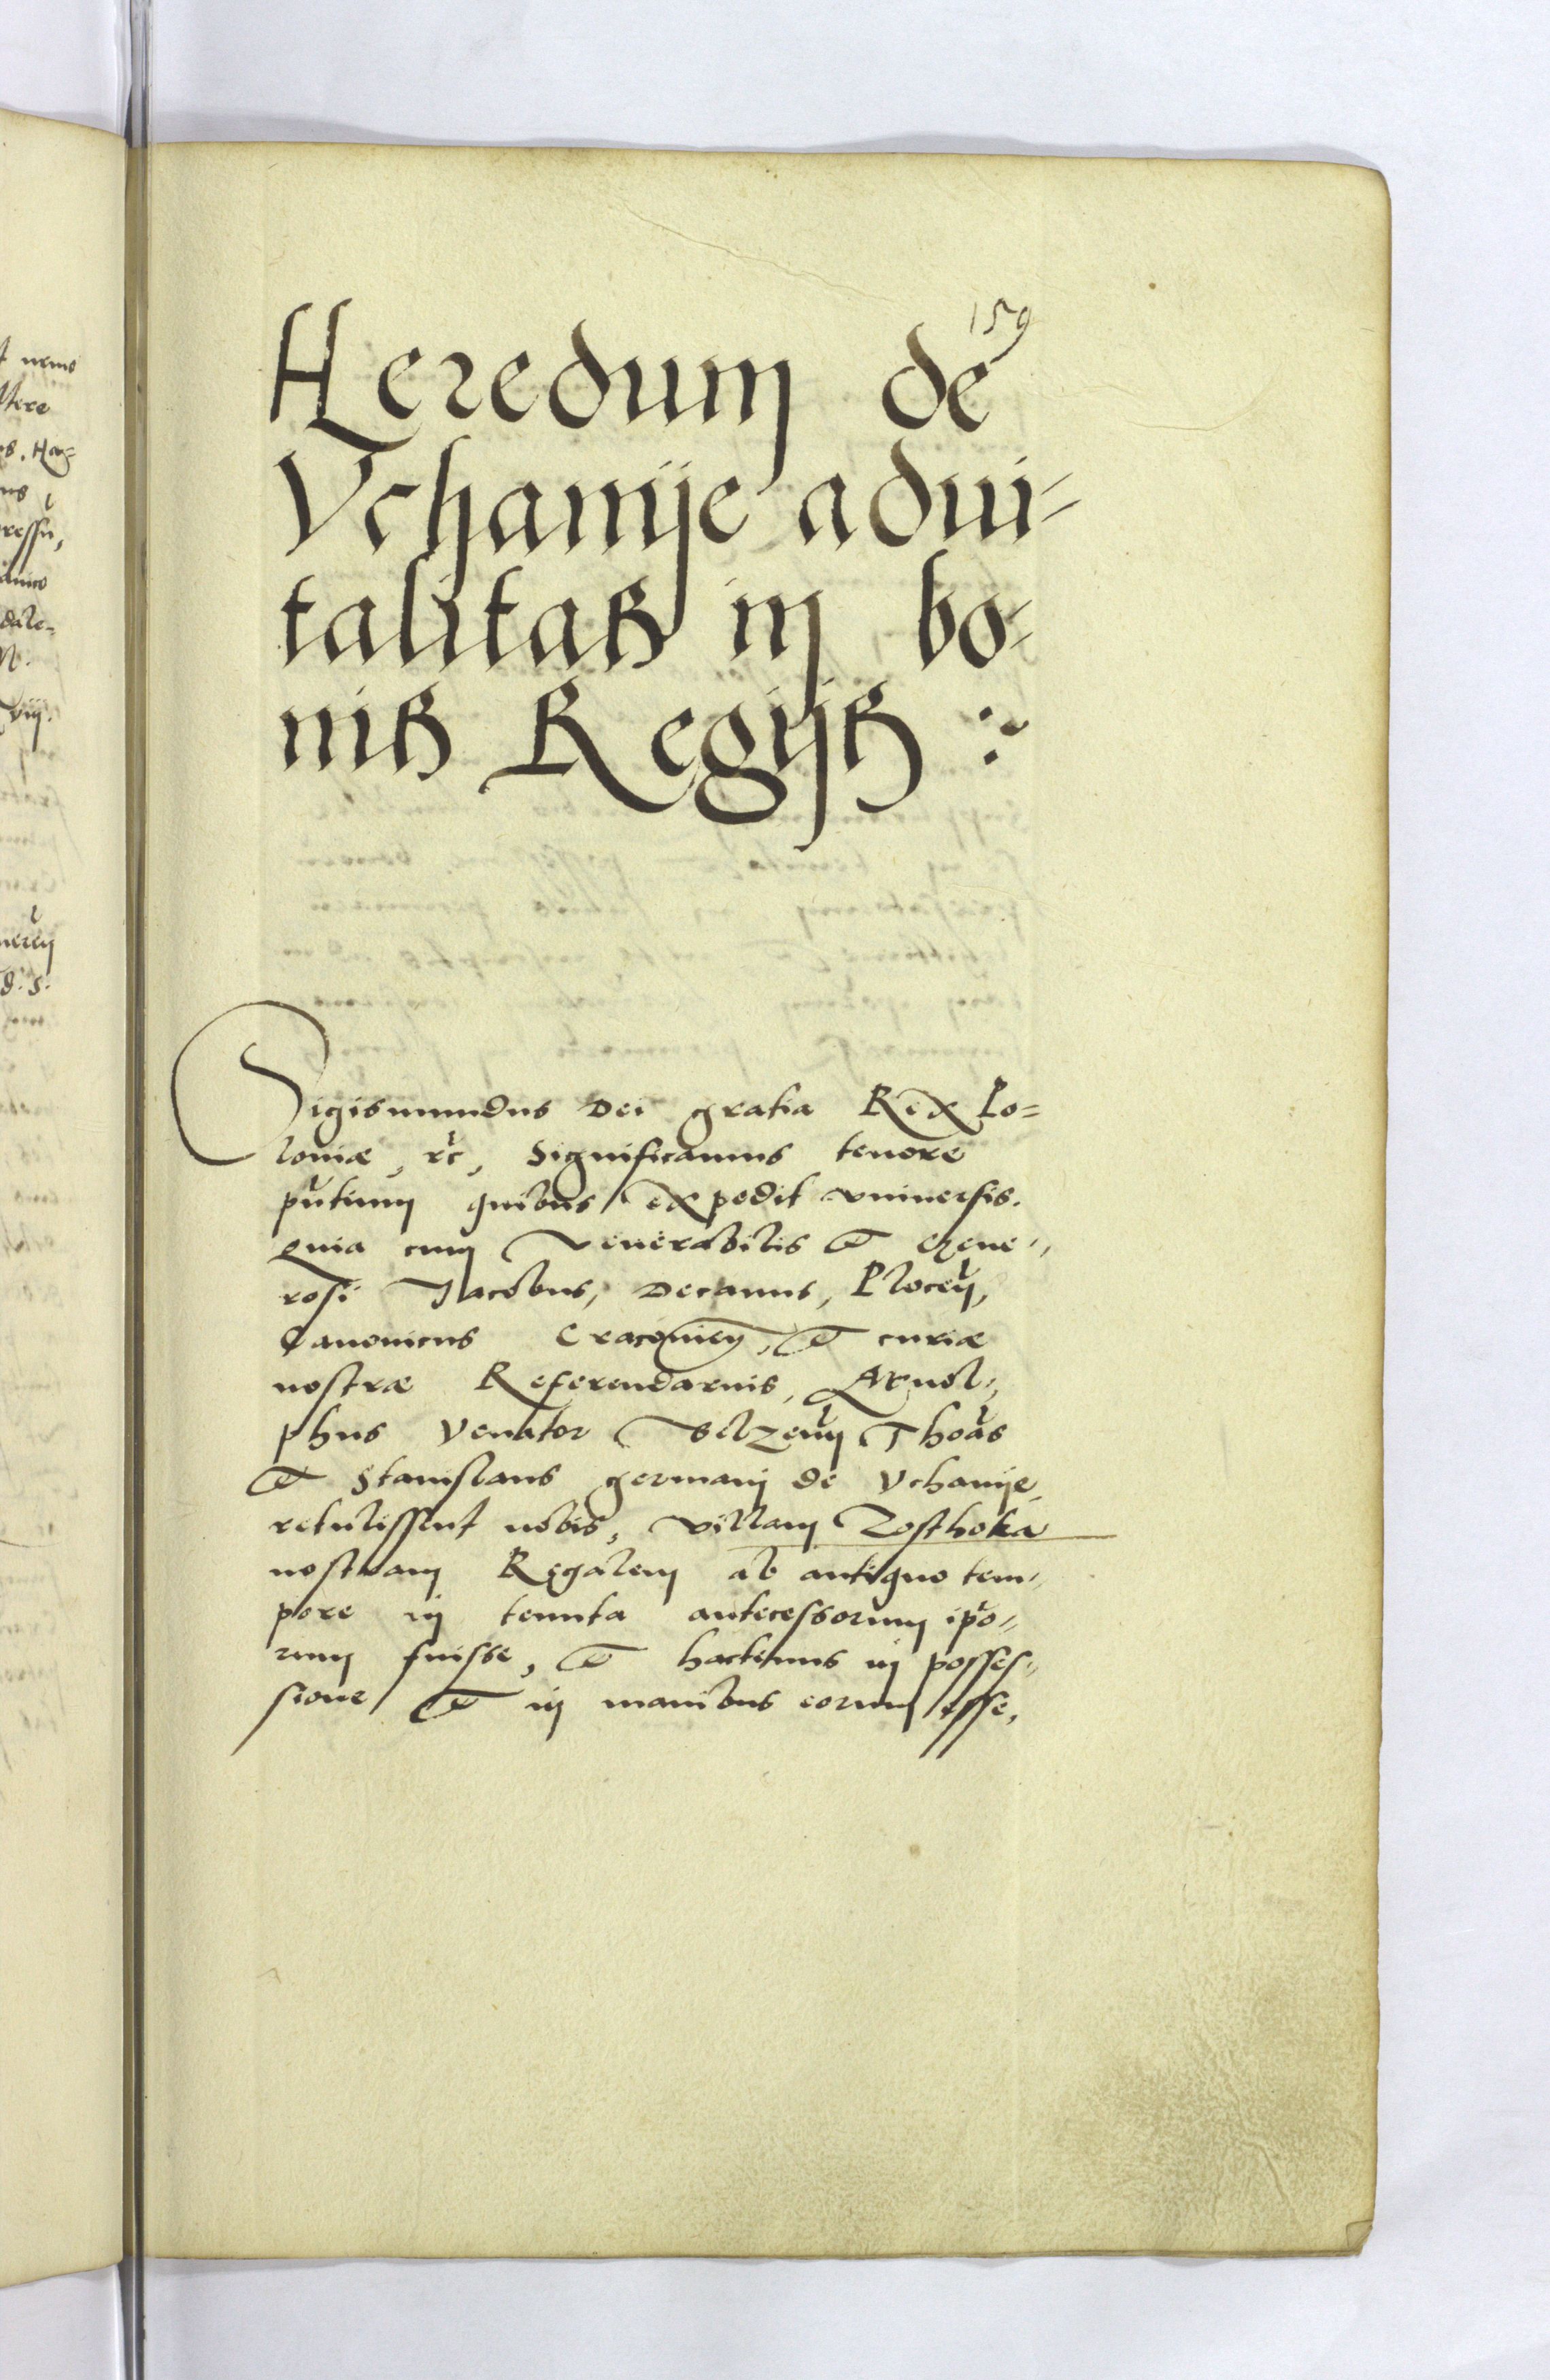 159
Heredum de
Vchanije advi-
talitas in bo-
nis Regijs :~
Sigismundus Dei gratia Rex Po=
loniæ, rc, Significamus tenore
pntium quibus expedit vniversis.
Quia cum Venerabilis et Gene-
rosi Jacobus, Decanus, Plocen,
Canonicus Cracovien, et curiæ
nostræ Referendarius, Arnol-
phus Venator Belzen Thoas
et Stanislaus germani de Vchanije
retulissent nobis, villam Zosthoka
nostram Regalem ab antiquo tem-
pore in tenuta antecessorum ipo-
rum fuisse, et hactenus in posses-
sione et in manibus eorum esse,